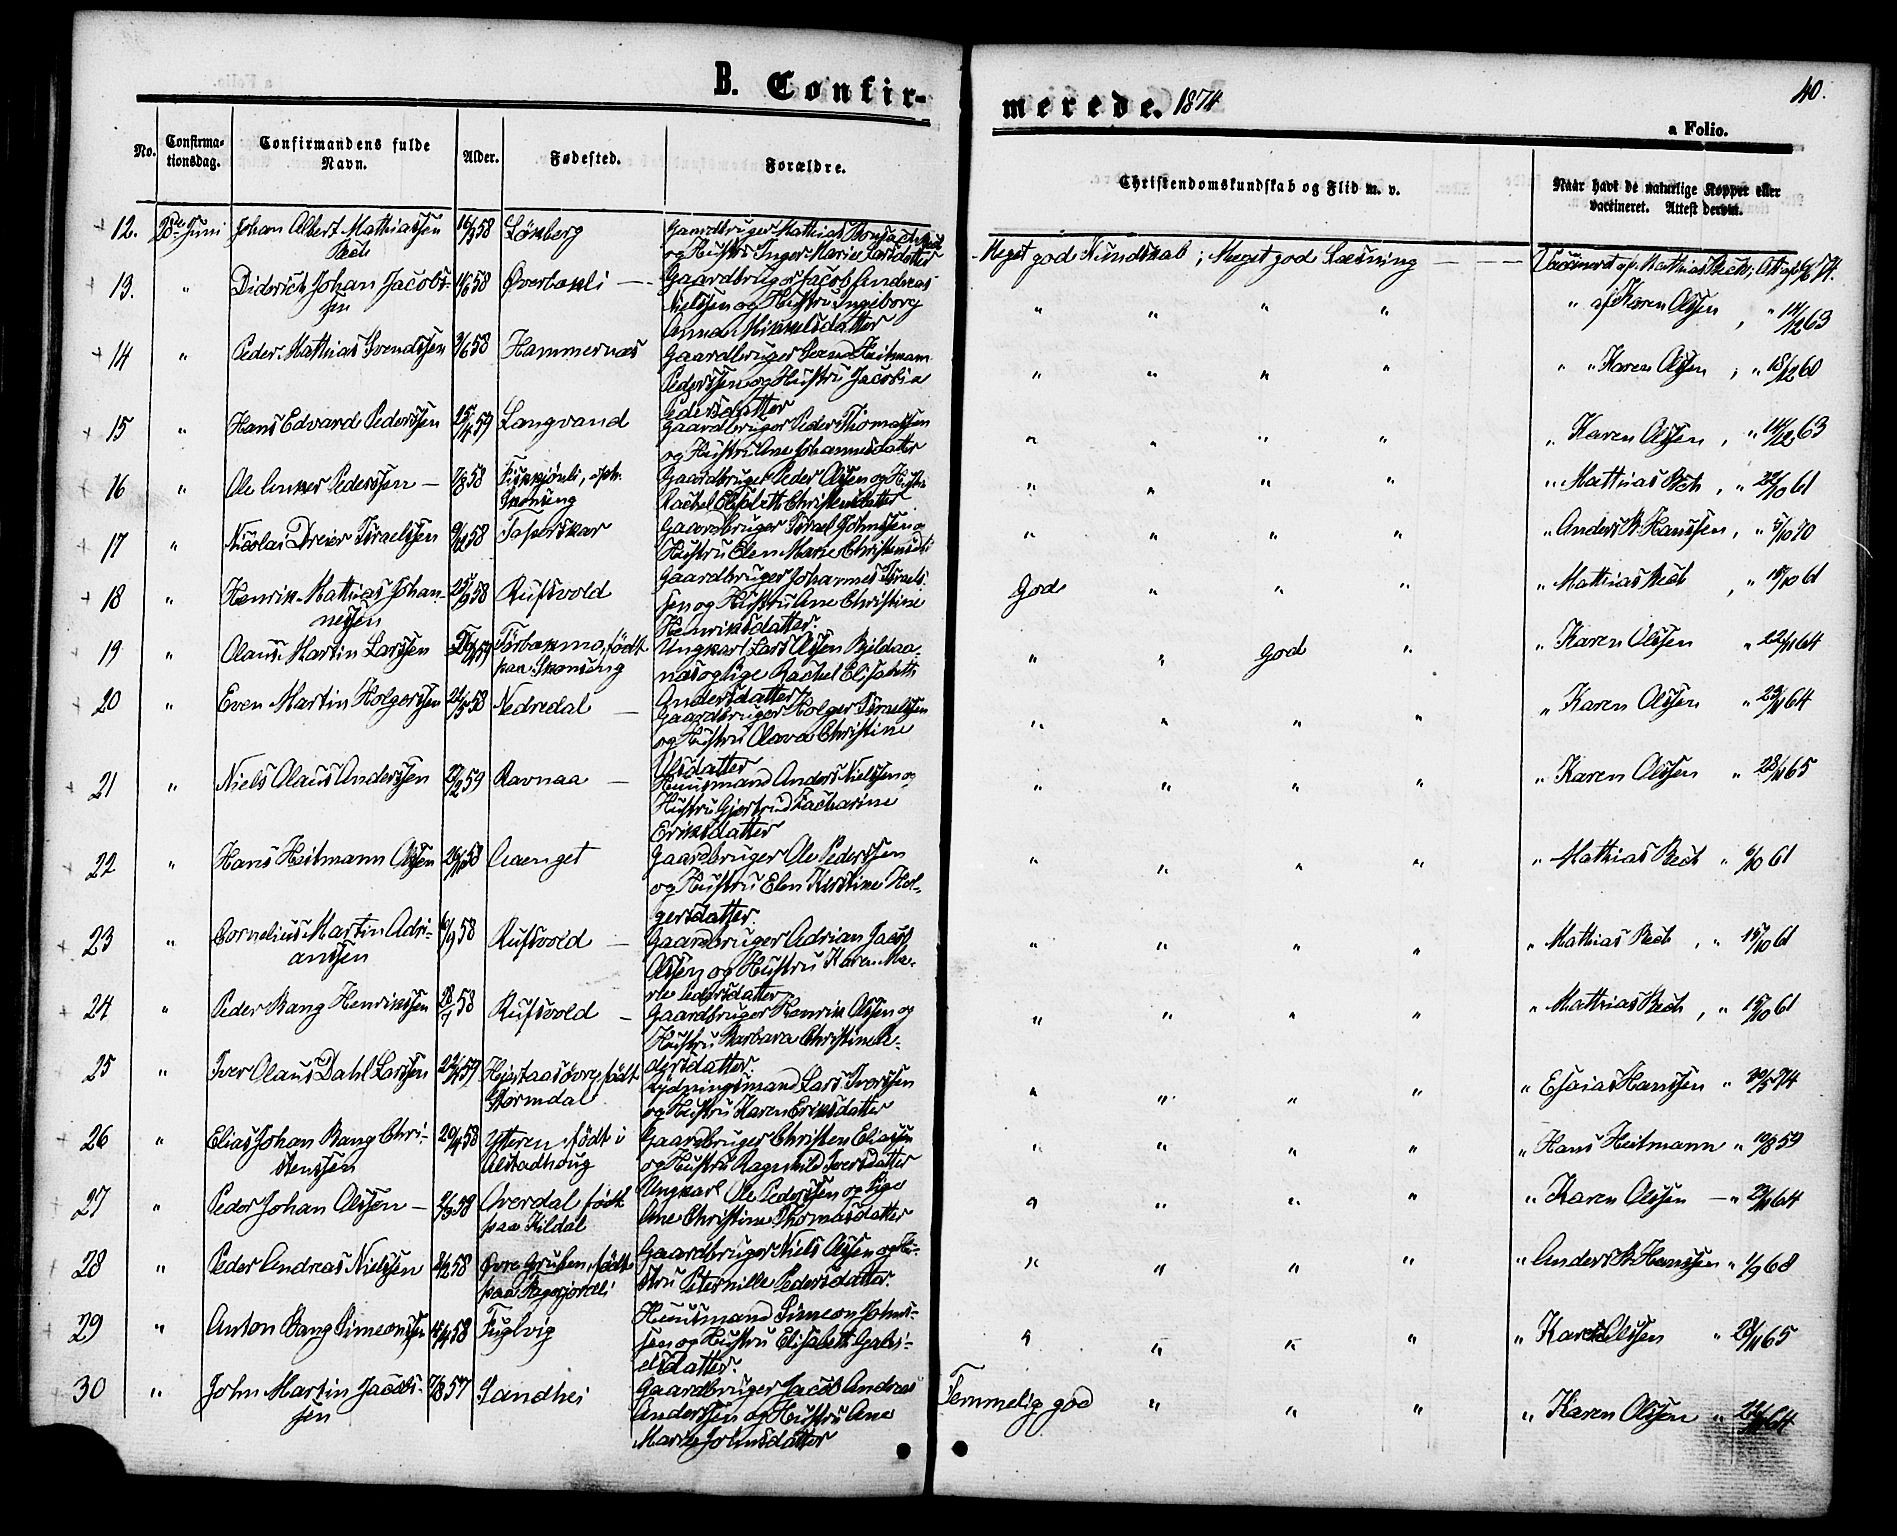 B. Confir-
merede. 1874
40.
a Folio.
No.
Confirma-
tionsdag.
Confirmandens fulde
Navn.
Alder.
Fødested.
Forældre.
Christendomskundskab og Flid m. v.
Naar havt de naturlige Kopper eller
vaccineret. Attest derom.
12. 28de Juni Johan Albert Mathiassen 16/3 58 Lønberg Gaardbruger Mathias
Bech og Hustru Inger Marie Larsdatter
Meget god Kundskab; Meget god Læsning — — Vaccineret af Mathias Bech; Att.
13. " Diderich Johan Jacobs- 58 Øverbakli — Gaardbruger Jacob Andreas
sen Nielssen og Hustru Ingeborg
Anna Mikkelsdatter
" " " " " af Karen Olssen, " 14/12 63
14 " Peder Mathias Svendssen 58 Hammernæs Gaardbruger Svend Heitmann
Pederssen og Hustru Jacobia
Pedersdatter
" " " " " " Karen Olssen, " 18/12 60
15 " Hans Edvard Pederssen 25/4 59 Langvand Gaardbruger Peder Thomassen
og Hustru Ane Johannesdatter
" " " " " Karen Olssen, " 14/12 63
16 " Ole Anker Pederssen — 58 Fiskkjønli, oph. Gaardbruger Peder Olssen og Hustru
Skonseng Rachel Elisabeth Christensdatter
" " " " " Mathias Bech, " 22/10 61
17 " Nicolai Dreier Israelssen 58 Tapeskar Gaardbruger Israel Johnssen og
Hustru Elen Marie Christensd.
" " " " " Anders B. Hanssen, " 5/10 70
18 " Henrik Mathias Johan- 25/9 58 Rufsvold Gaardbruger Johannes Israels-
nessen sen og Hustru Ane Christine
Henriksdatter.
God " " " " Mathias Bech, " 15/10 61
19 " Olaus Martin Larssen 59 Storbakmo, født Ungkarl Lars Olssen Bildaa-
paa Skonseng næs og Pige Rachel Elisabeth
Andersdatter
" " God " " Karen Olssen " 22/11 64
20 " Even Martin Holgerssen 21/5 58 Nedredal — Gaardbruger Holger Israelssen
og Hustru Olava Christine
Olsdatter
" " " " " Karen Olssen " 23/11 64
21 " Niels Olaus Anderssen 59 Ravnaa — Huusmand Anders Nielssen og
Hustru Gjertrud Zacharine
Eriksdatter
" " " " " Karen Olssen " 28/11 65
22 " Hans Heitmann Olssen 58 Aaenget Gaardbruger Ole Pederssen
og Hustru Elen Kirstine Hol-
gersdatter.
" " " " " Mathias Bech " 6/10 61
23 " Cornelius Martin Adri- 58 Rufsvold — Gaardbruger Adrian Jacob
anssen Olssen og Hustru Karen Ma-
rie Pedersdatter
" " " " " Mathias Bech, " 15/10 61
24 " Peder Bang Henrikssen 28/7 58 Rufsvold — Gaardbruger Henrik Olssen og
Hustru Barbara Christine A-
dersdatter.
" " " " " Mathias Bech, " 15/10 61
25 " Iver Olaus Dahl Larssen 59 Hjertaasøvre, født Rydningsmand Lars Iverssen
Stormdal og Hustru Karen Eriksdatter
" " " " " Esaias Hanssen " 30/5 74
26 " Elias Johan Bang Chri- 58 Ytteren, født i Gaardbruger Christen Eliassen
stenssen Alstadhoug og Hustru Ragnhild Iversdatter
" " " " " Hans Heitmann " 10/8 59
27 " Peder Johan Olssen — 58 Overdal født Ungkarl Ole Pederssen og Pige
paa Kildal Ane Christine Thomasdatter
" " " " " Karen Olssen — " 23/11 64
28 " Peder Andreas Nielssen 58 Øvre Gruben, født Gaardbruger Niels Olssen og Hu-
paa stru Peternille Pedersdatter.
" " " " " Anders B. Hanssen " 1/9 68
29 " Anton Bang Simeonssen 58 Fuglvig Huusmand Simeon Johns-
sen og Hustru Elisabeth Gabri-
elsdatter.
" " " " " Karen Olssen " 28/11 65
30 " John Martin Jacobs- 7/8 57 Sandhei Gaardbruger Jacob Andreas
sen Anderssen og Hustru Ane
Marie Johnsdatter
Temmelig god " " " " Karen Olssen " 64